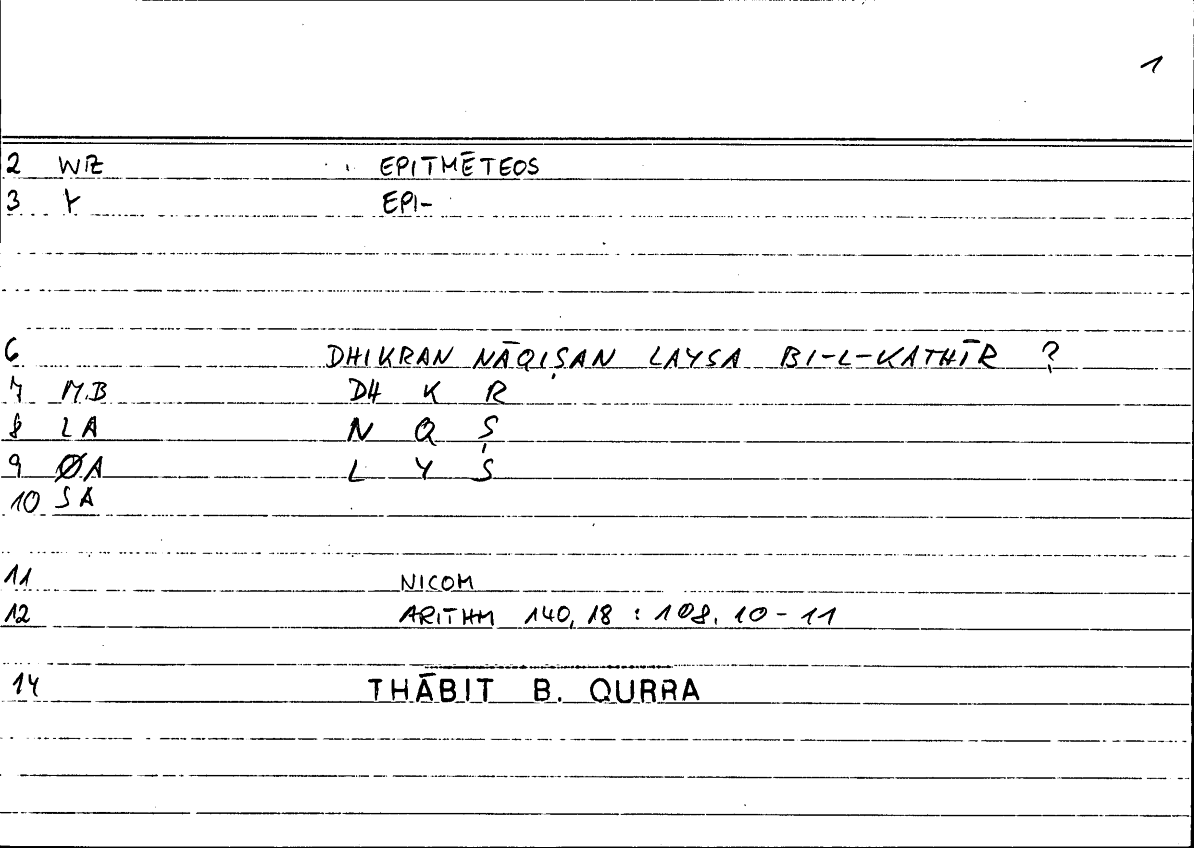 1
2 WZ EPITMĒTEOS
3 Y EPI-
6 DHIKRAN NĀQIṢAN LAYSA BI-L-KATHĪR ?
7 M.B DH K R
8 LA N Q Ṣ
9 ØA L Y S
10 SA
11 NICOM
12 ARITHM 140,18 : 108.10-11
14 THĀBIT B. QURRA